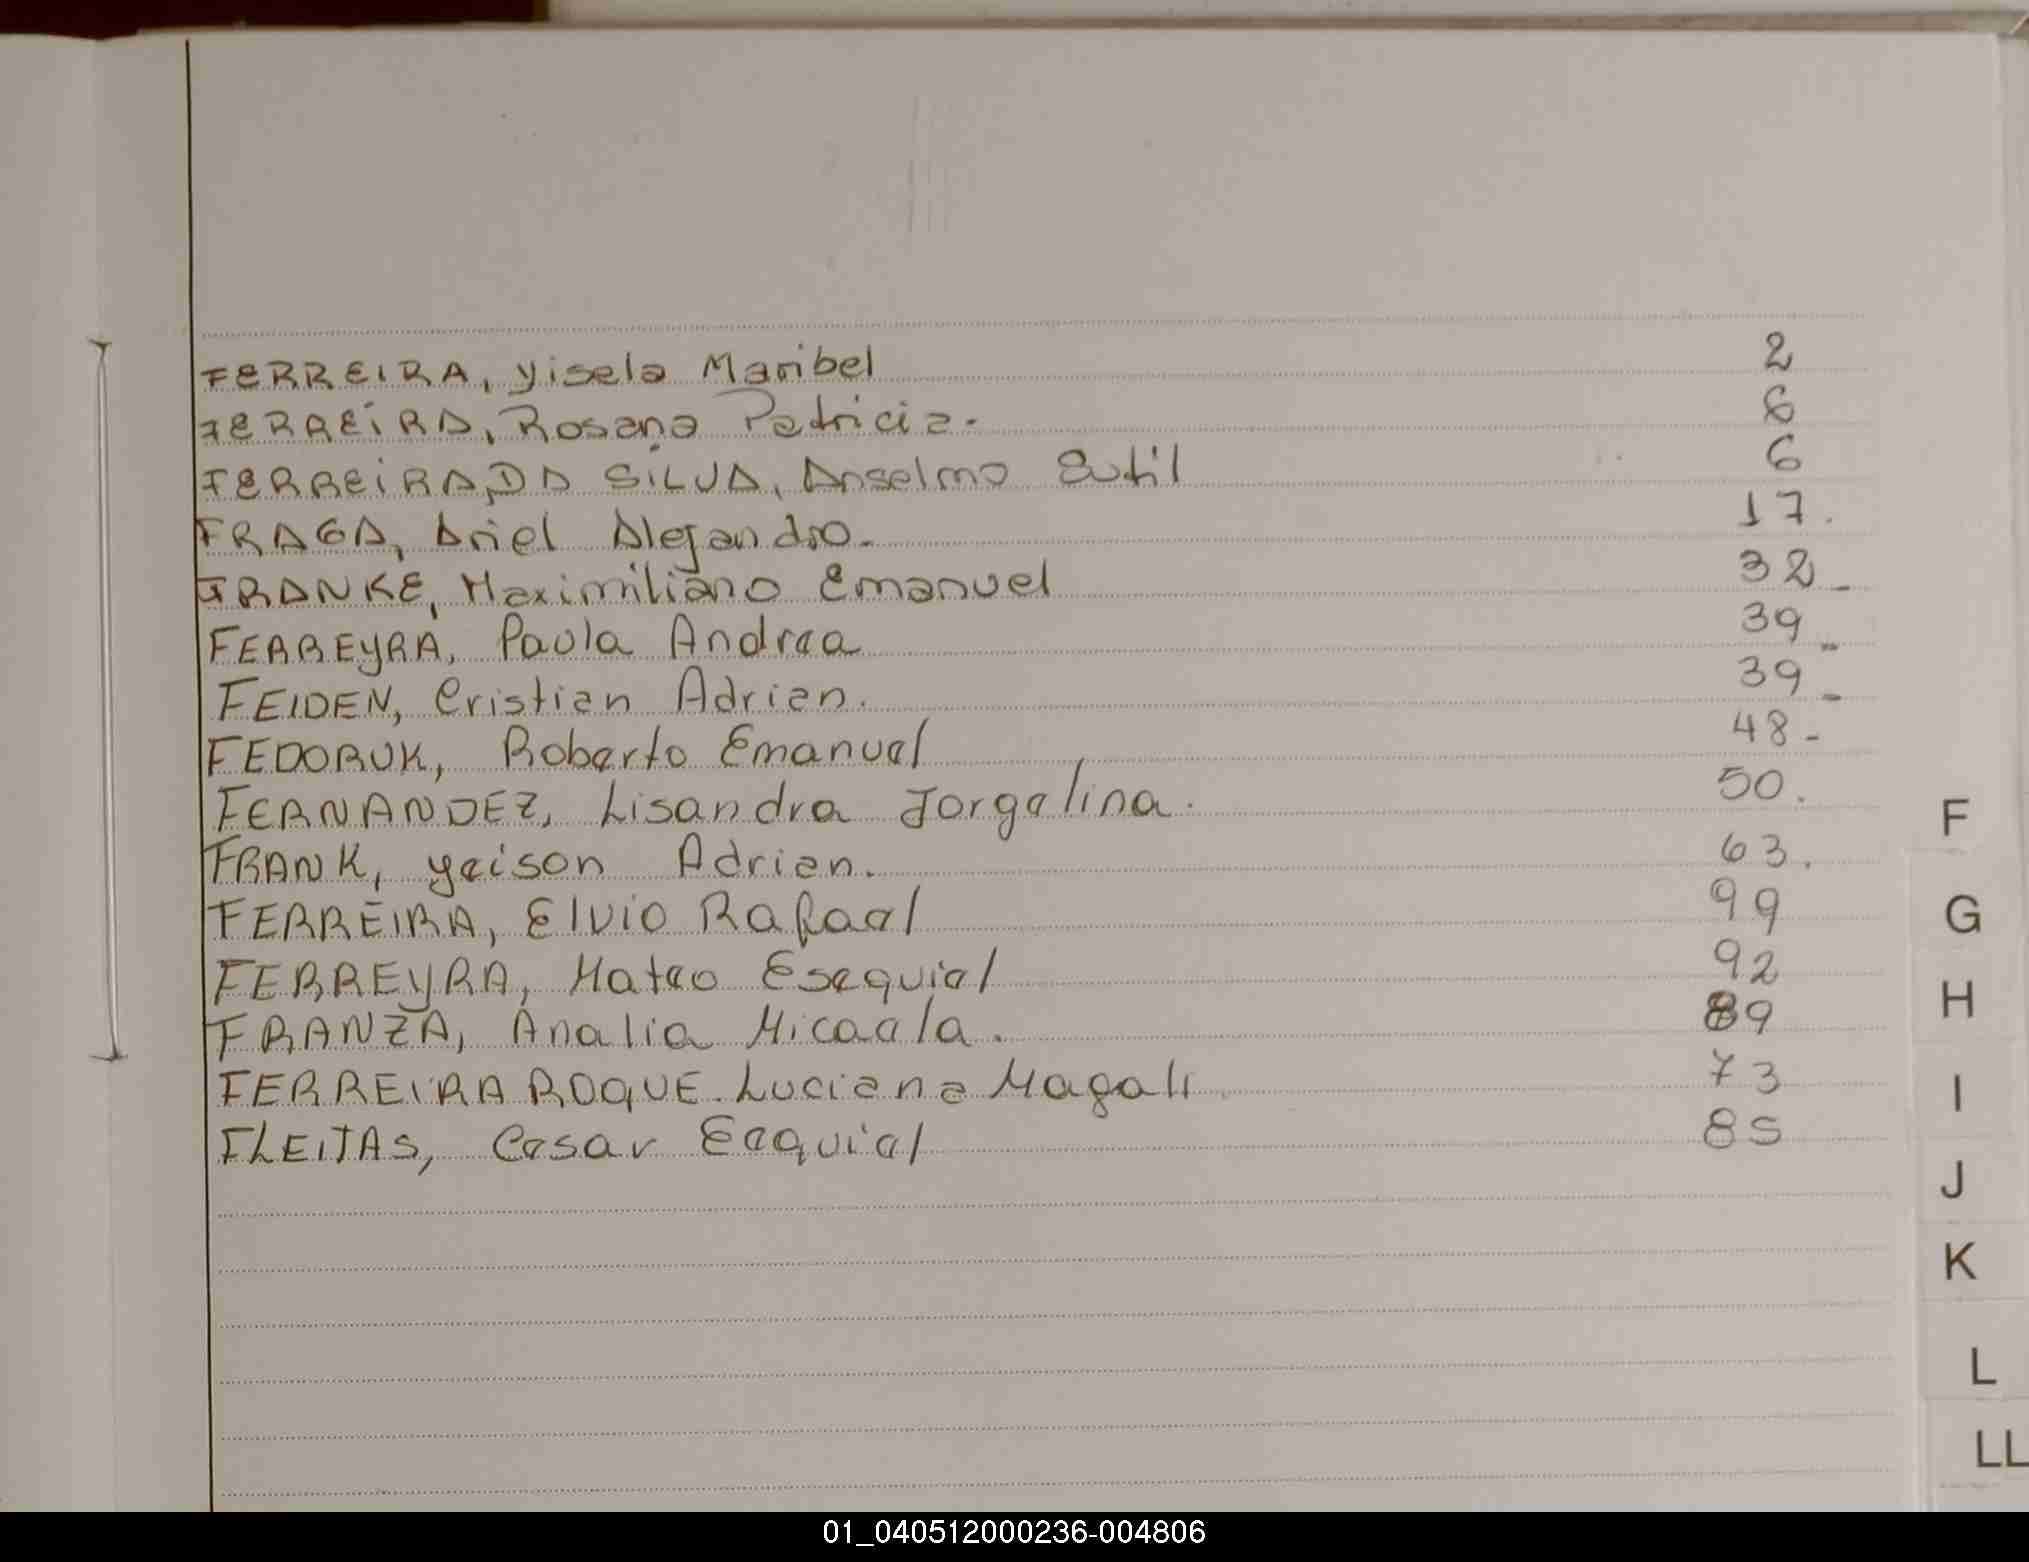 FERREIRA, Yisela Maribel 2
FERREIRA, Rosana Patricia. 6
FERREIRA DA SILVA, Anselmo Sutil 6
FRAGA, Ariel Alejandro. 17.
FRANKE, Maximiliano Emanuel 32-
FERREYRA, Paula Andrea 39-
FEIDEN, Cristian Adrian. 39-
FEDORUK, Roberto Emanuel 48-
FERNANDEZ, Lisandra Jorgelina. 50.
FRANK, Yeison Adrian. 63.
FERREIRA, Elvio Rafael 99
FERREYRA, Mateo Esequiel 92
FRANZA, Analia Micaela. 89
FERREIRA ROQUE. Luciana Magali 73
FLEITAS, Cesar Eequiel 85
F
G
H
I
J
K
L
LL
01_040512000236-004806